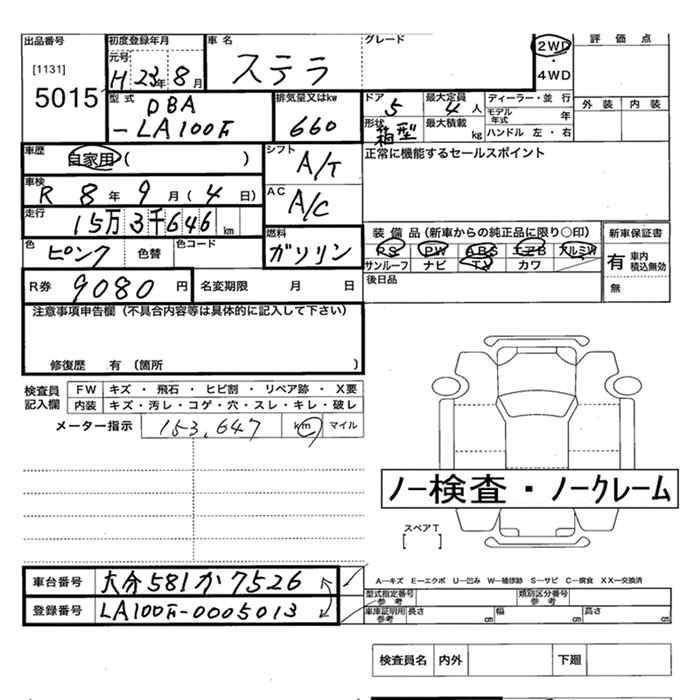 出品番号 初度登録年月 車名 グレード 2WD 評価点
[1131] 元号 ・
5015 H 23年 8月 ステラ 4WD
型式 排気量又はkw ドア 最大定員 ディーラー・並行 外装 内装
DBA 5 4人 モデル年式 年
-LA100F 660 形状 箱型 最大積載 kg ハンドル 左・右
車歴 自家用 ( ) シフト A/T 正常に機能するセールスポイント
車検 R 8年 9月 (4日) AC A/C
走行 15万3千646 km 燃料 装備品(新車からの純正品に限り○印) 新車保証書
色 ピンク 色替 色コード ガソリン PS PW ABS エアB アルミW 有 車内積込無効
サンルーフ ナビ TV カワ
R券 9080円 名変期限 月 日 後日品 無
注意事項申告欄(不具合内容等は具体的に記入して下さい)
修復歴 有 (箇所 )
検査員 FW キズ・飛石・ヒビ割・リペア跡・X要
記入欄 内装 キズ・汚レ・コゲ・穴・スレ・キレ・破レ
メーター指示 153,647 km マイル
ノー検査・ノークレーム
スペアT
[ ]
車台番号 大分581か7526 A—キズ E—エクボ U—凹み W—補修跡 S—サビ C—腐食 XX—交換済
登録番号 LA100F-0005013 型式指定番号 参考 類別区分番号 参考
車庫証明用 参考 長さ cm 幅 cm 高さ cm
検査員名 内外 下廻